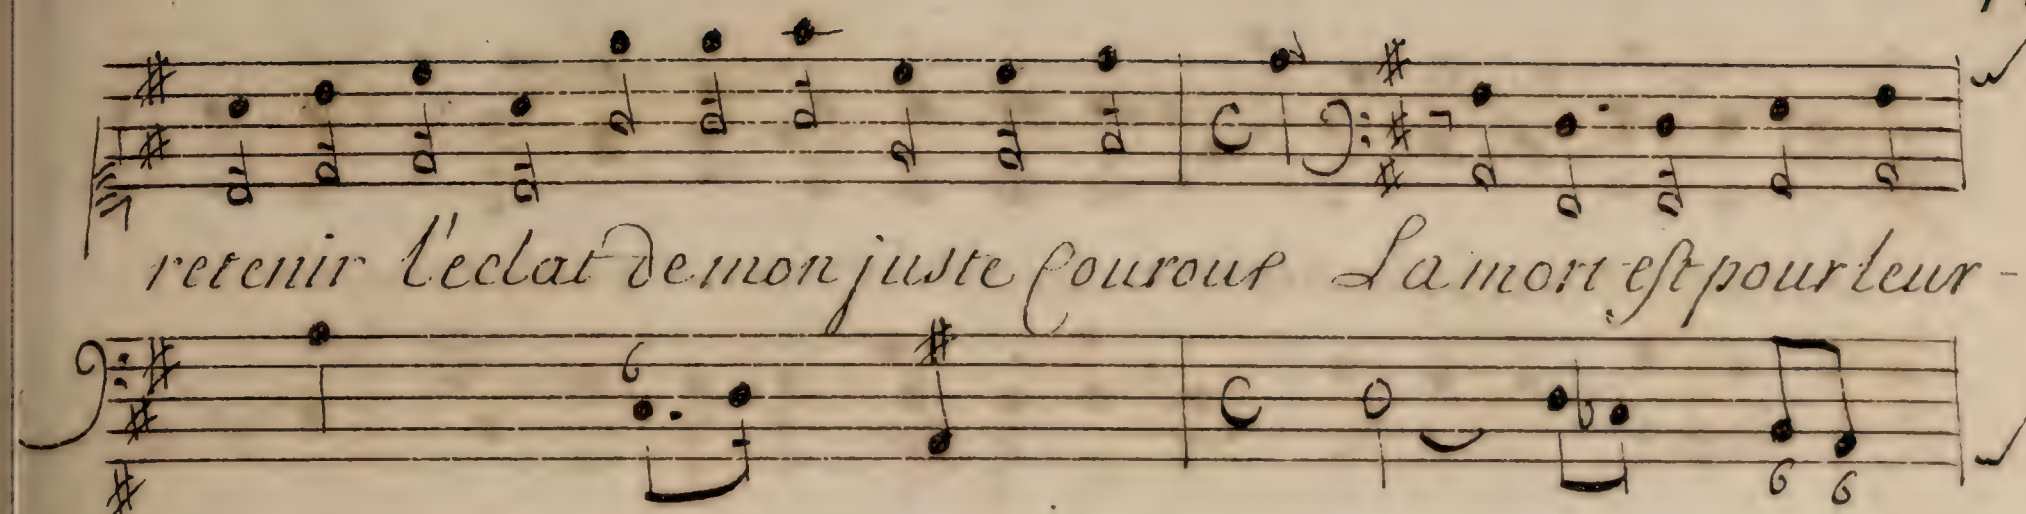 retenir l'eclat de mon juste Courous La mort est pour leur-
6
6 6